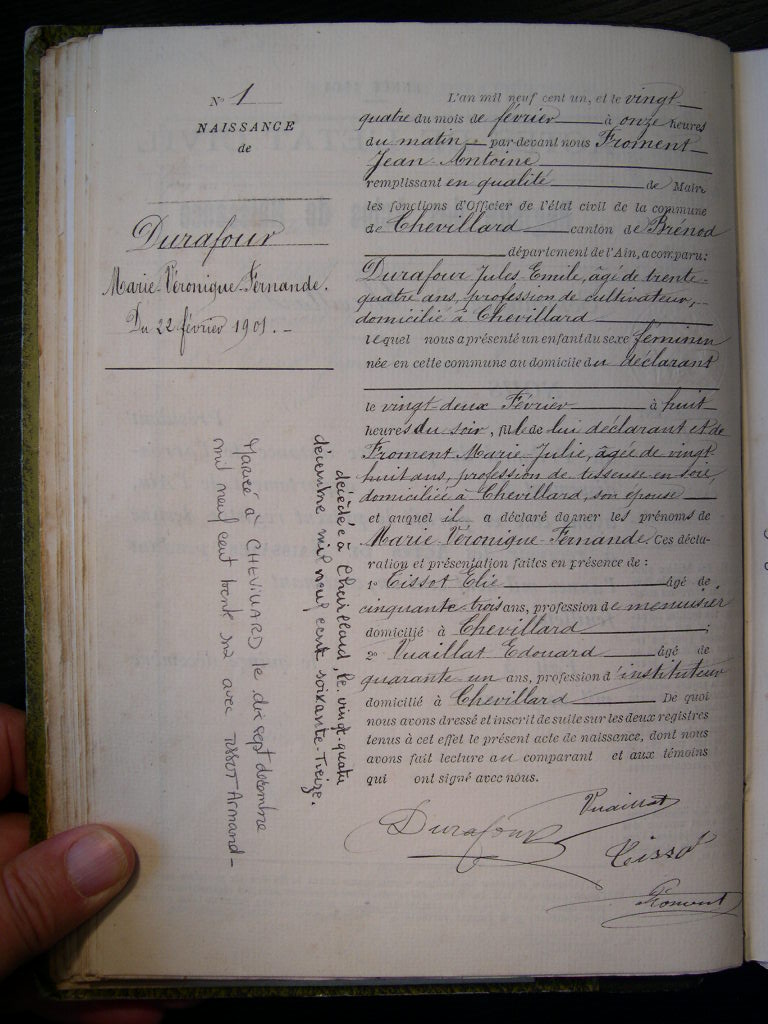 N° 1
NAISSANCE
de
Durafour
Marie-Véronique-Fernande.
Du 22 février 1901.-
Mariée à CHEVILLARD le dix sept décembre
mil neuf cent trente six avec TISSOT Armand-
décédée à Chevillard, le vingt-quatre
décembre mil neuf cent soixante-treize.
L'an mil neuf cent un, et le vingt
quatre du mois de février à onze heures
du matin par-devant nous Froment
Jean-Antoine
remplissant en qualité de Maire
les fonctions d'Officier de l'état civil de la commune
de Chevillard canton de Brénod
département de l'Ain, a comparu:
Durafour Jules-Emile, âgé de trente-
quatre ans, profession de cultivateur,
domicilié à Chevillard
lequel nous a présenté un enfant du sexe féminin
née en cette commune au domicile du déclarant
le vingt-deux Février à huit
heures du soir, fille de lui déclarant et de
Froment Marie-Julie, âgée de vingt
huit ans, profession de tisseuse en soie,
domiciliée à Chevillard, son épouse
et auquel il a déclaré donner les prénoms de
Marie-Véronique-Fernande. Ces décla-
ration et présentation faites en présence de :
1° Tissot Elie âgé de
cinquante trois ans, profession de menuisier
domicilié à Chevillard ;
2° Vuaillat Edouard âgé de
quarante un ans, profession d'instituteur
domicilié à Chevillard De quoi
nous avons dressé et inscrit de suite sur les deux registres
tenus à cet effet le présent acte de naissance, dont nous
avons fait lecture au comparant et aux témoins
qui ont signé avec nous.
Vuaillat
Durafour
Tissot
Froment